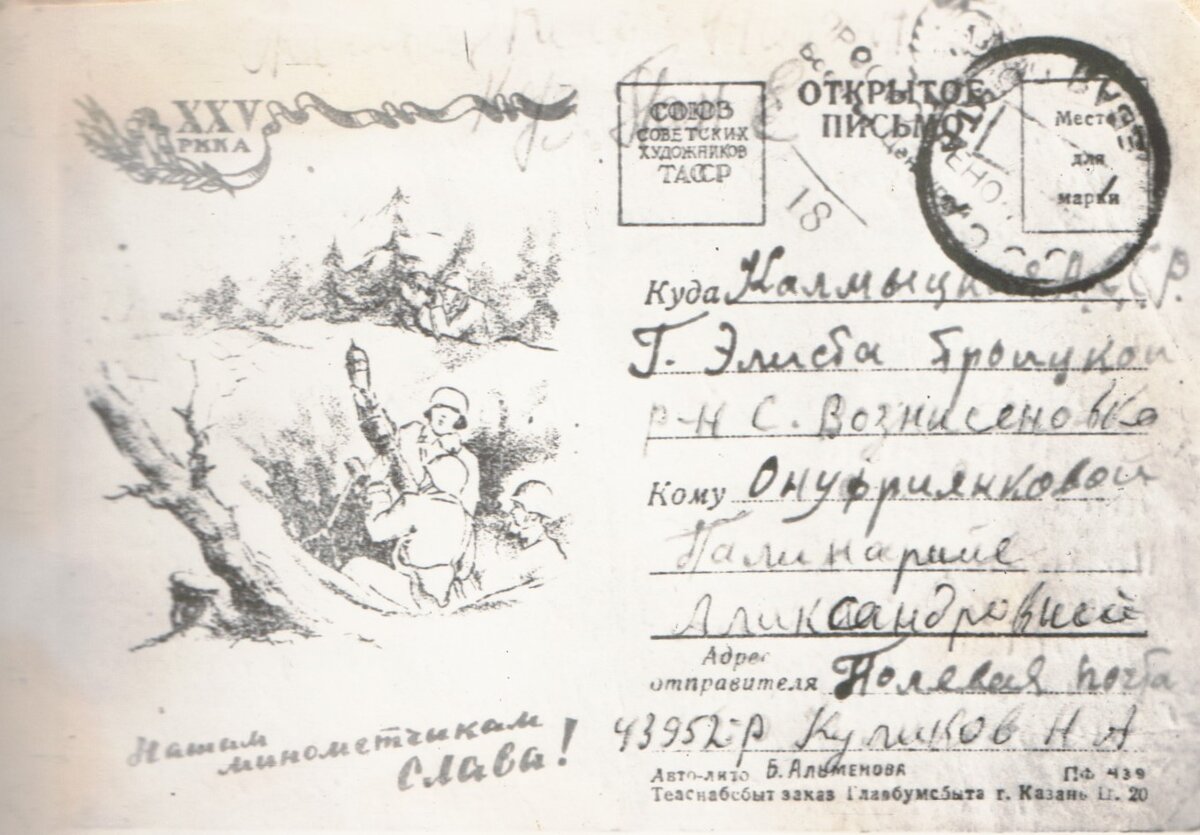 XXV
РККА
Нашим
минометчикам
Слава!
СОЮЗ
СОВЕТСКИХ
ХУДОЖНИКОВ
ТАССР
ОТКРЫТОЕ
ПИСЬМО
Место
для
марки
18
Куда Калмыцкая АССР.
Г. Элиста Троицкой
р-н С. Вознисеновка
Кому Онуфриянковой
Палинарие
Аликсандровной
Адрес
отправителя Полевая почта
43952-Р Куликов Н А
Авто-лито Б. Альменова ПФ 439
Теаснабсбыт заказ Главбумсбыта г. Казань Ц. 20